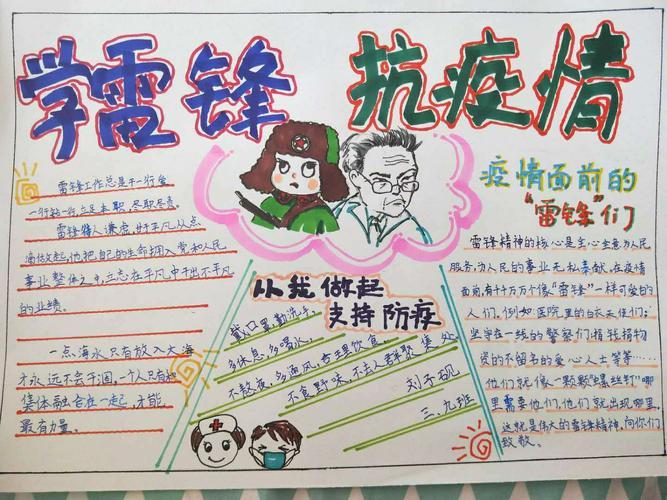 学雷锋 抗疫情
雷锋工作总是干一行爱
一行钻一行,立足本职,尽职尽责。
雷锋待人谦虚,对平凡从点
滴做起,他把自己的生命拥入党和人民
事业整体之中,立志在平凡中干出不平凡
的业绩。
一点海水只有放入大海
才永远不会干涸,一个人只有和
集体融合在一起,才能
最有力量。
从我做起
支持防疫
戴口罩,勤洗手,
多休息,多喝水,
不熬夜,多通风,合理饮食,
不食野味,不去人群聚集处
刘子砚
三、九班
疫情面前的
“雷锋”们
雷锋精神的核心是全心全意为人民
服务,为人民的事业无私奉献,在疫情
面前,有千千万万个像“雷锋”一样可爱的
人们,例如医院里的白衣天使们;
坚守在一线的警察们;捐钱捐物
资的不留名的爱心人士等等……
他们就像一颗颗“螺丝钉”哪
里需要他们,他们就出现哪里,
这就是伟大的雷锋精神,向你们
致敬。